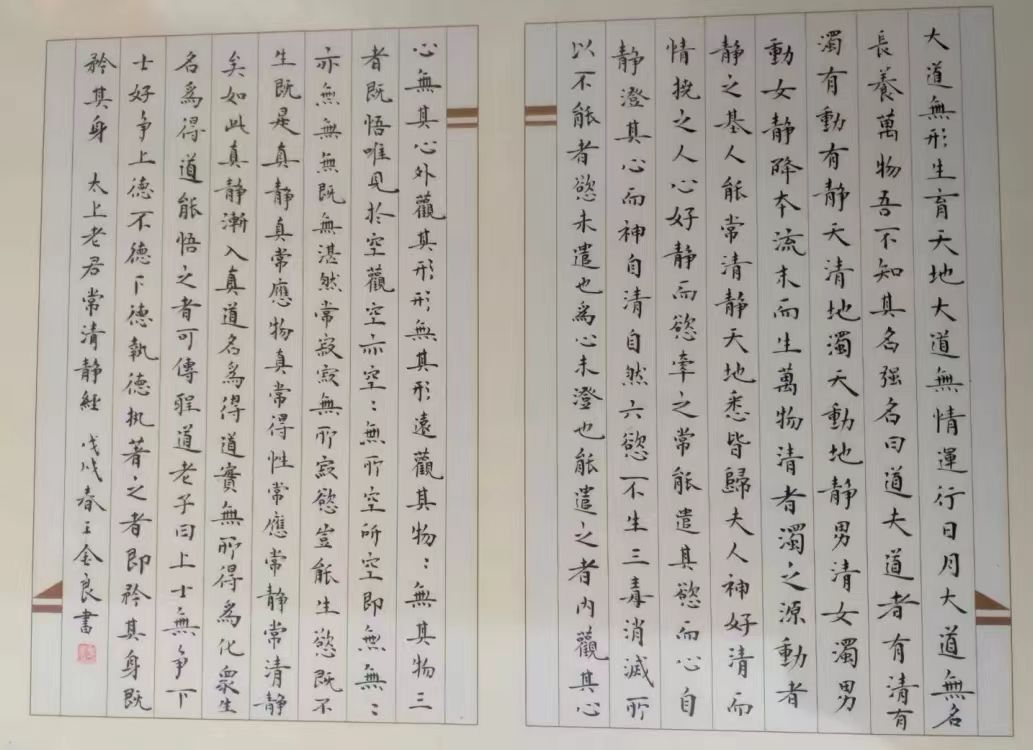 大道無形生育天地大道無情運行日月大道無名
長養萬物吾不知其名强名曰道夫道者有清有
濁有動有静天清地濁天動地静男清女濁男
動女静降夲流末而生萬物清者濁之源動者
静之基人能常清静天地悉皆歸夫人神好清而
情挠之人心好静而慾牽之常能遣其慾而心自
静澄其心而神自清自然六慾不生三毒消滅所
以不能者慾未遣也為心未澄也能遣之者内觀其心
心無其心外觀其形形無其形遠觀其物：無其物三
者既悟唯見於空觀空亦空：無所空所空即無：
亦無無無既無湛然常寂寂無所寂慾豈能生慾既不
生既是真静真常應物真常得性常應常静常清静
矣如此真静漸入真道名為得道實無所得為化衆生
名為得道能悟之者可傳聖道老子曰上士無争下
士好争上德不德下德執德执著之者即矜其身既
矜其身 太上老君常清静經 戊戌春王金良書